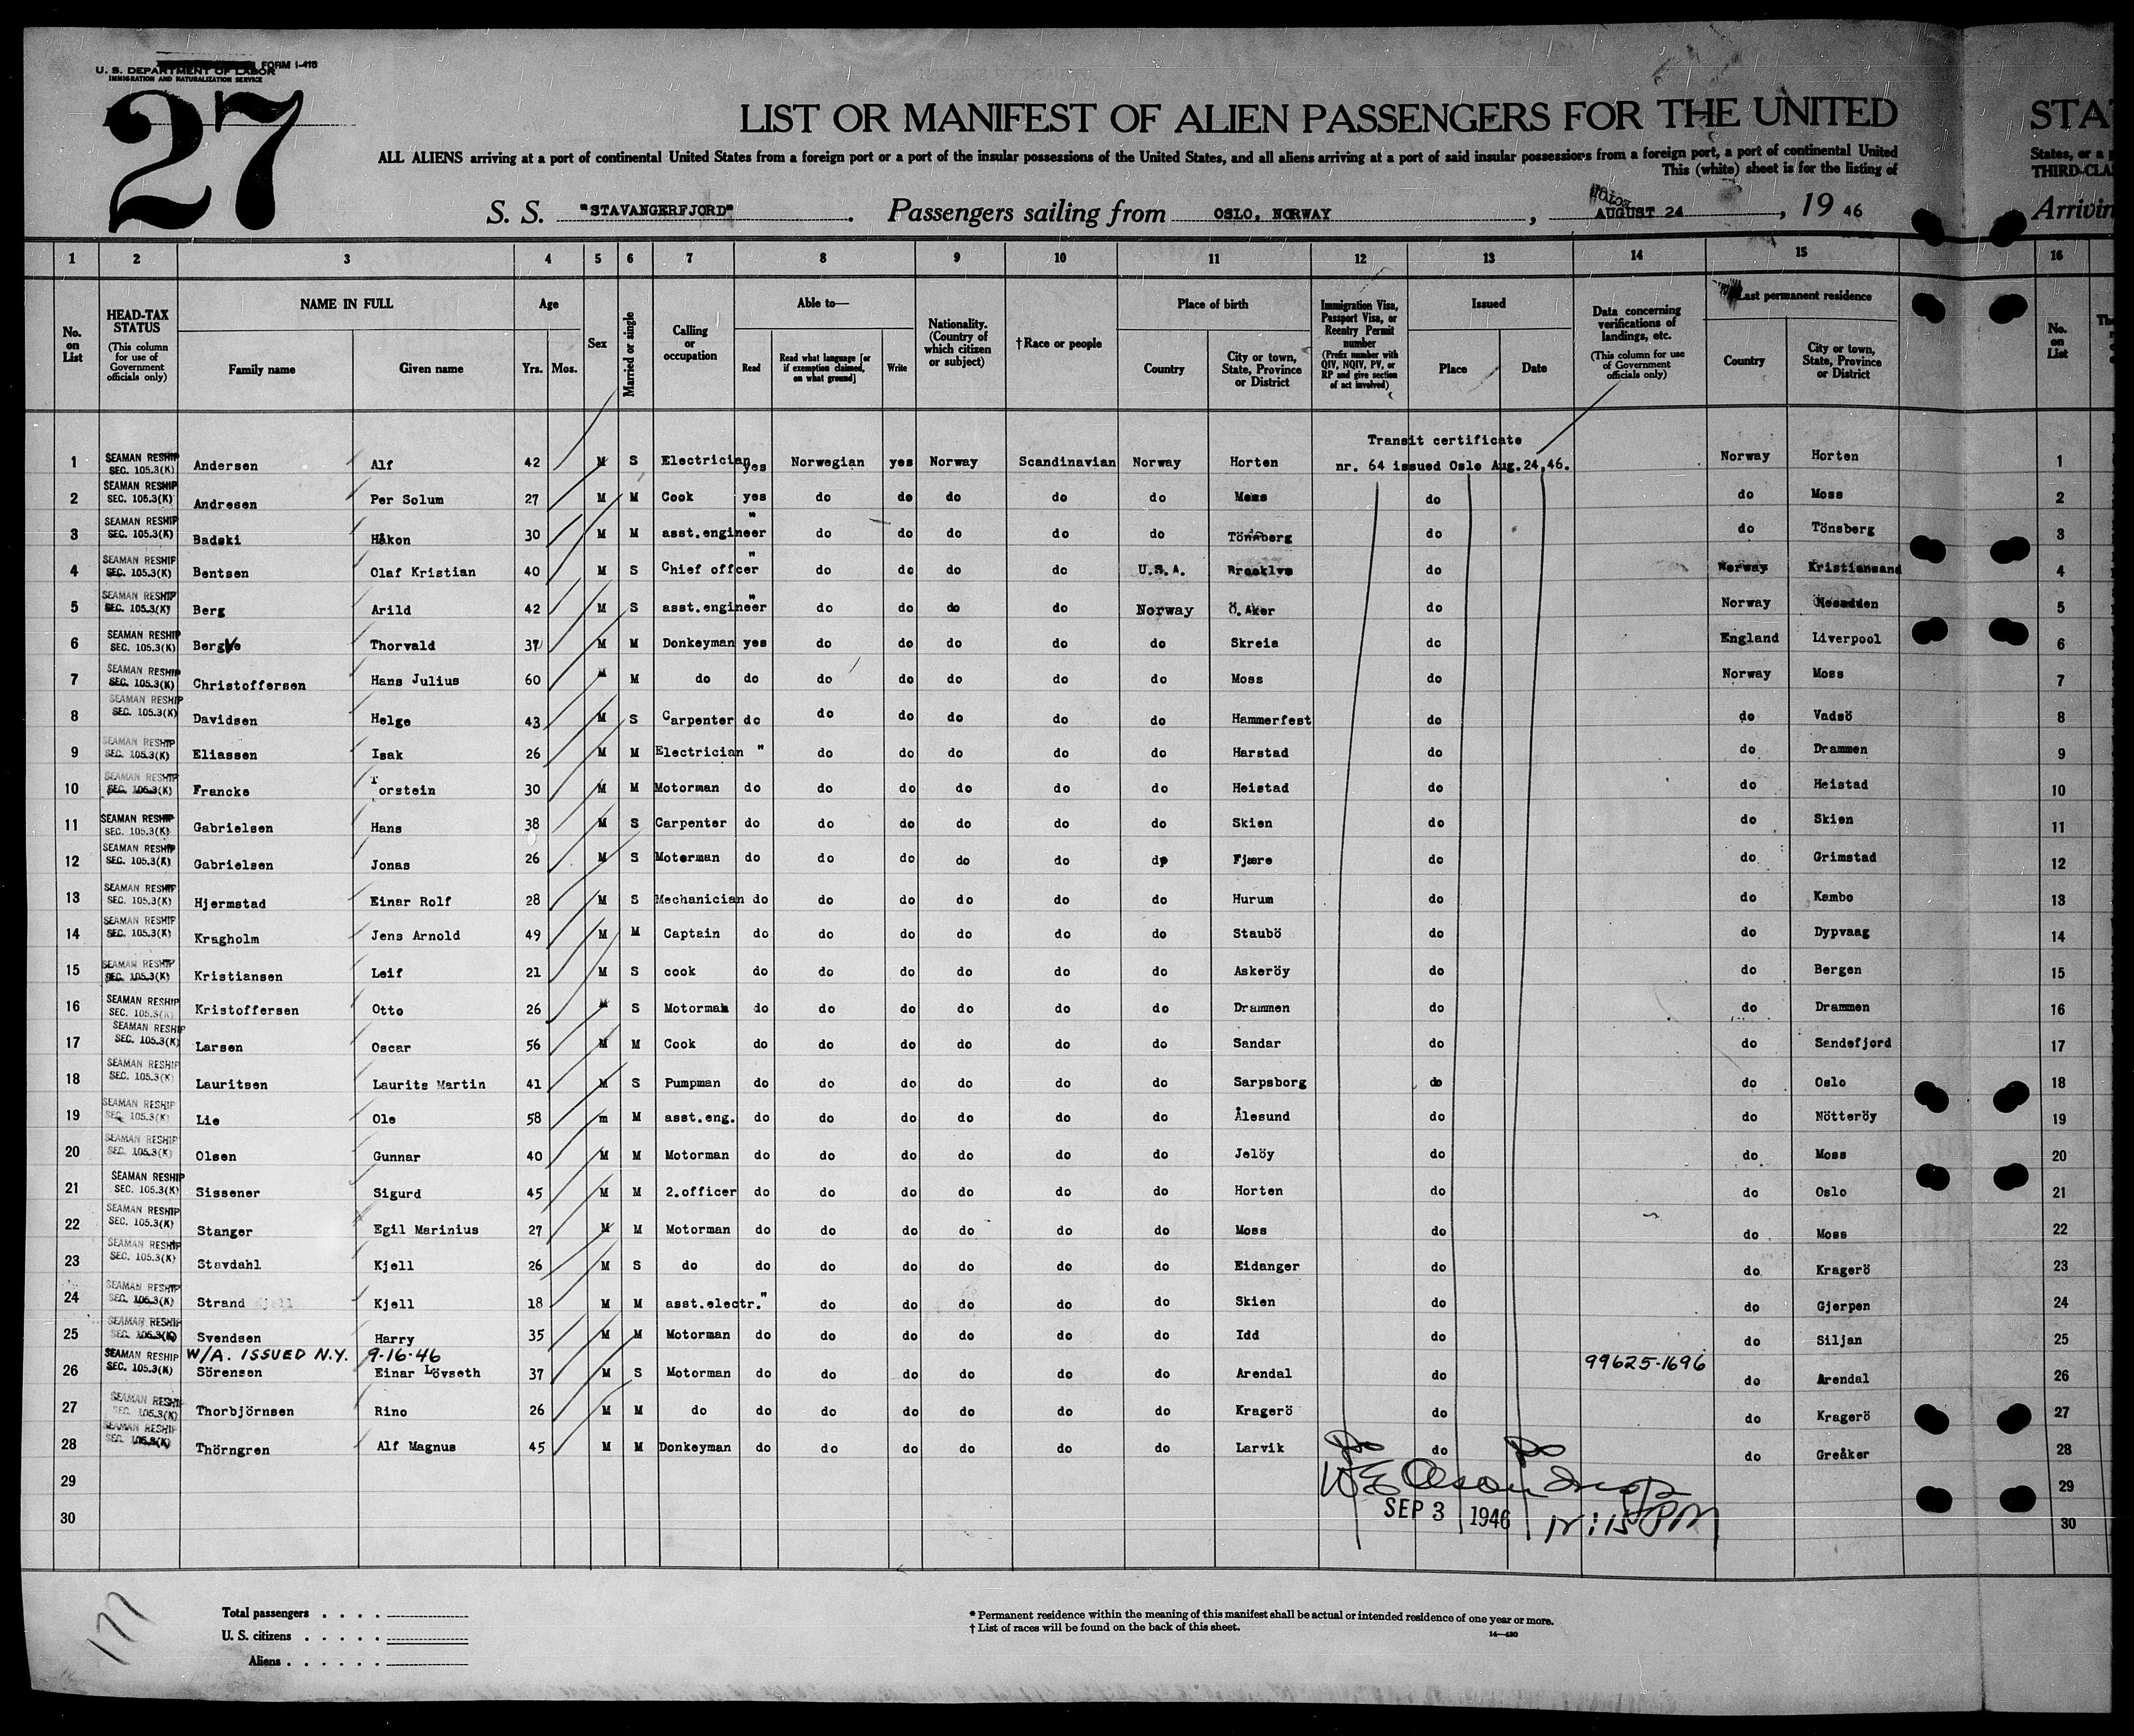 FORM I-415
U. S. DEPARTMENT OF LABOR
IMMIGRATION AND NATURALIZATION SERVICE
27
LIST OR MANIFEST OF ALIEN PASSENGERS FOR THE UNITED STA
ALL ALIENS arriving at a port of continental United States from a foreign port or a port of the insular possessions of the United States, and all aliens arriving at a port of said insular possessions from a foreign port, a port of continental United States, or a p
This (white) sheet is for the listing of THIRD-CLA
S. S. "STAVANGERFJORD". Passengers sailing from OSLO, NORWAY, AUGUST 24, 19 46 Arrivin
1 2 3 4 5 6 7 8 9 10 11 12 13 14 15 16
No. on List
HEAD-TAX STATUS (This column for use of Government officials only)
NAME IN FULL Family name Given name
Age Yrs. Mos.
Sex
Married or single
Calling or occupation
Able to— Read Read what language [or if exemption claimed, on what ground] Write
Nationality. (Country of which citizen or subject)
†Race or people
Place of birth Country City or town, State, Province or District
Immigration Visa, Passport Visa, or Reentry Permit number (Prefix number with QIV, NQIV, PV, or RP and give section of act involved)
Issued Place Date
Data concerning verifications of landings, etc. (This column for use of Government officials only)
Last permanent residence Country City or town, State, Province or District
No. on List
Transit certificate
1 SEAMAN RESHIP SEC. 105.3(K) Andersen Alf 42 M S Electrician yes Norwegian yes Norway Scandinavian Norway Horten nr. 64 issued Oslo Aug.24,46. Norway Horten 1
2 SEAMAN RESHIP SEC. 105.3(K) Andresen Per Solum 27 M M Cook yes do do do do do Moss do do Moss 2
3 SEAMAN RESHIP SEC. 105.3(K) Badski Håkon 30 M M asst.engineer " do do do do do Tönsberg do do Tönsberg 3
4 SEAMAN RESHIP SEC. 105.3(K) Bentsen Olaf Kristian 40 M S Chief offcer " do do do do U.S.A. Brooklyn do Norway Kristiansand 4
5 SEAMAN RESHIP SEC. 105.3(K) Berg Arild 42 M S asst.engineer " do do do do Norway Ö. Aker do Norway 5
6 SEAMAN RESHIP SEC. 105.3(K) Bergve Thorvald 37 M M Donkeyman yes do do do do do Skreia do England Liverpool 6
7 SEAMAN RESHIP SEC. 105.3(K) Christoffersen Hans Julius 60 M M do do do do do do do Moss do Norway Moss 7
8 SEAMAN RESHIP SEC. 105.3(K) Davidsen Helge 43 M S Carpenter do do do do do do Hammerfest do do Vadsö 8
9 SEAMAN RESHIP SEC. 105.3(K) Eliassen Isak 26 M M Electrician " do do do do do Harstad do do Drammen 9
10 SEAMAN RESHIP SEC. 105.3(K) Francke Torstein 30 M M Motorman do do do do do do Heistad do do Heistad 10
11 SEAMAN RESHIP SEC. 105.3(K) Gabrielsen Hans 38 M S Carpenter do do do do do do Skien do do Skien 11
12 SEAMAN RESHIP SEC. 105.3(K) Gabrielsen Jonas 26 M S Moterman do do do do do do Fjære do do Grimstad 12
13 SEAMAN RESHIP SEC. 105.3(K) Hjermstad Einar Rolf 28 M S Mechanician do do do do do do Hurum do do Kambo 13
14 SEAMAN RESHIP SEC. 105.3(K) Kragholm Jens Arnold 49 M M Captain do do do do do do Staubö do do Dypvaag 14
15 SEAMAN RESHIP SEC. 105.3(K) Kristiansen Leif 21 M S cook do do do do do do Askeröy do do Bergen 15
16 SEAMAN RESHIP SEC. 105.3(K) Kristoffersen Otto 26 M S Motorman do do do do do do Drammen do do Drammen 16
17 SEAMAN RESHIP SEC. 105.3(K) Larsen Oscar 56 M M Cook do do do do do do Sandar do do Sandefjord 17
18 SEAMAN RESHIP SEC. 105.3(K) Lauritsen Laurits Martin 41 M S Pumpman do do do do do do Sarpsborg do do Oslo 18
19 SEAMAN RESHIP SEC. 105.3(K) Lie Ole 58 m M asst.eng. do do do do do do Ålesund do do Nötteröy 19
20 SEAMAN RESHIP SEC. 105.3(K) Olsen Gunnar 40 M M Motorman do do do do do do Jelöy do do Moss 20
21 SEAMAN RESHIP SEC. 105.3(K) Sissener Sigurd 45 M M 2.officer do do do do do do Horten do do Oslo 21
22 SEAMAN RESHIP SEC. 105.3(K) Stanger Egil Marinius 27 M M Motorman do do do do do do Moss do do Moss 22
23 SEAMAN RESHIP SEC. 105.3(K) Stavdahl Kjell 26 M S do do do do do do do Eidanger do do Kragerö 23
24 SEAMAN RESHIP SEC. 105.3(K) Strand Kjell 18 M M asst.electr." do do do do do Skien do do Gjerpen 24
25 SEAMAN RESHIP SEC. 105.3(K) Svendsen Harry 35 M M Motorman do do do do do do Idd do do Siljan 25
W/A. ISSUED N.Y. 9-16-46 99625-1696
26 SEAMAN RESHIP SEC. 105.3(K) Sörensen Einar Lövseth 37 M S Motorman do do do do do do Arendal do do Arendal 26
27 SEAMAN RESHIP SEC. 105.3(K) Thorbjörnsen Rino 26 M M do do do do do do do Kragerö do do Kragerö 27
28 SEAMAN RESHIP SEC. 105.3(K) Thörngren Alf Magnus 45 M M Donkeyman do do do do do do Larvik do do Greåker 28
29 29
30 SEP 3 1946 12:15 PM 30
177
Total passengers
U. S. citizens
Aliens
* Permanent residence within the meaning of this manifest shall be actual or intended residence of one year or more.
† List of races will be found on the back of this sheet.
14—420